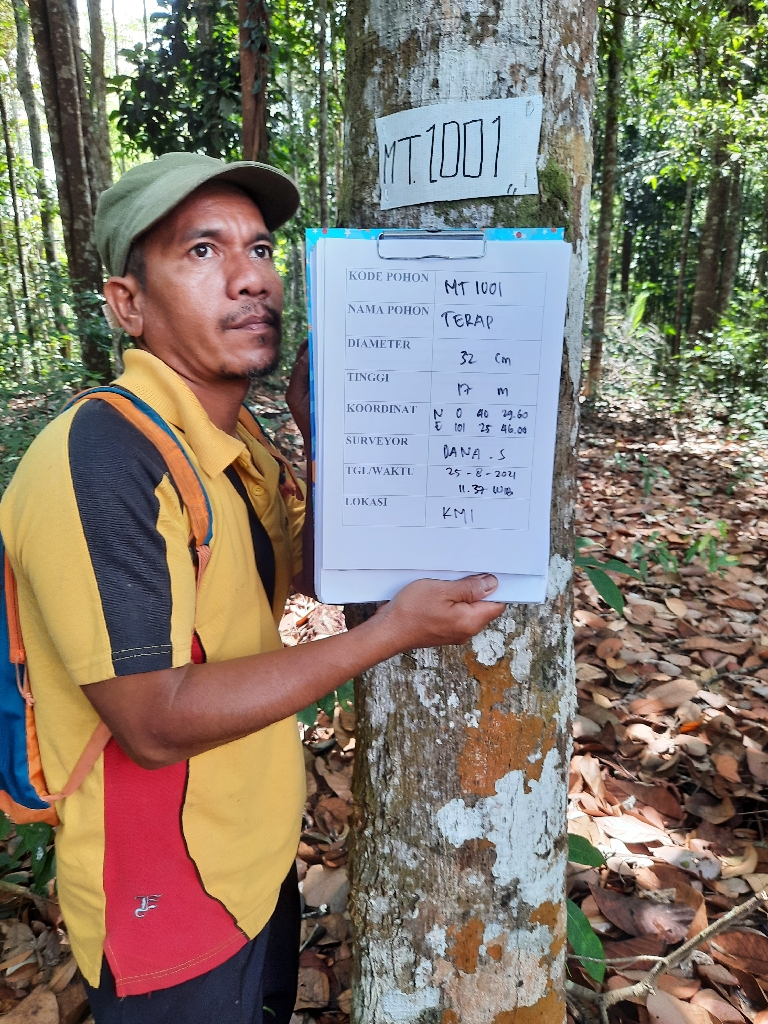 MT.1001
KODE POHON MT 1001
NAMA POHON TERAP
DIAMETER 32 Cm
TINGGI 17 m
KOORDINAT N 0 40 29.60
E 101 25 46.00
SURVEYOR DANA.S
TGL/WAKTU 25-8-2021
11.37 WIB
LOKASI KMI